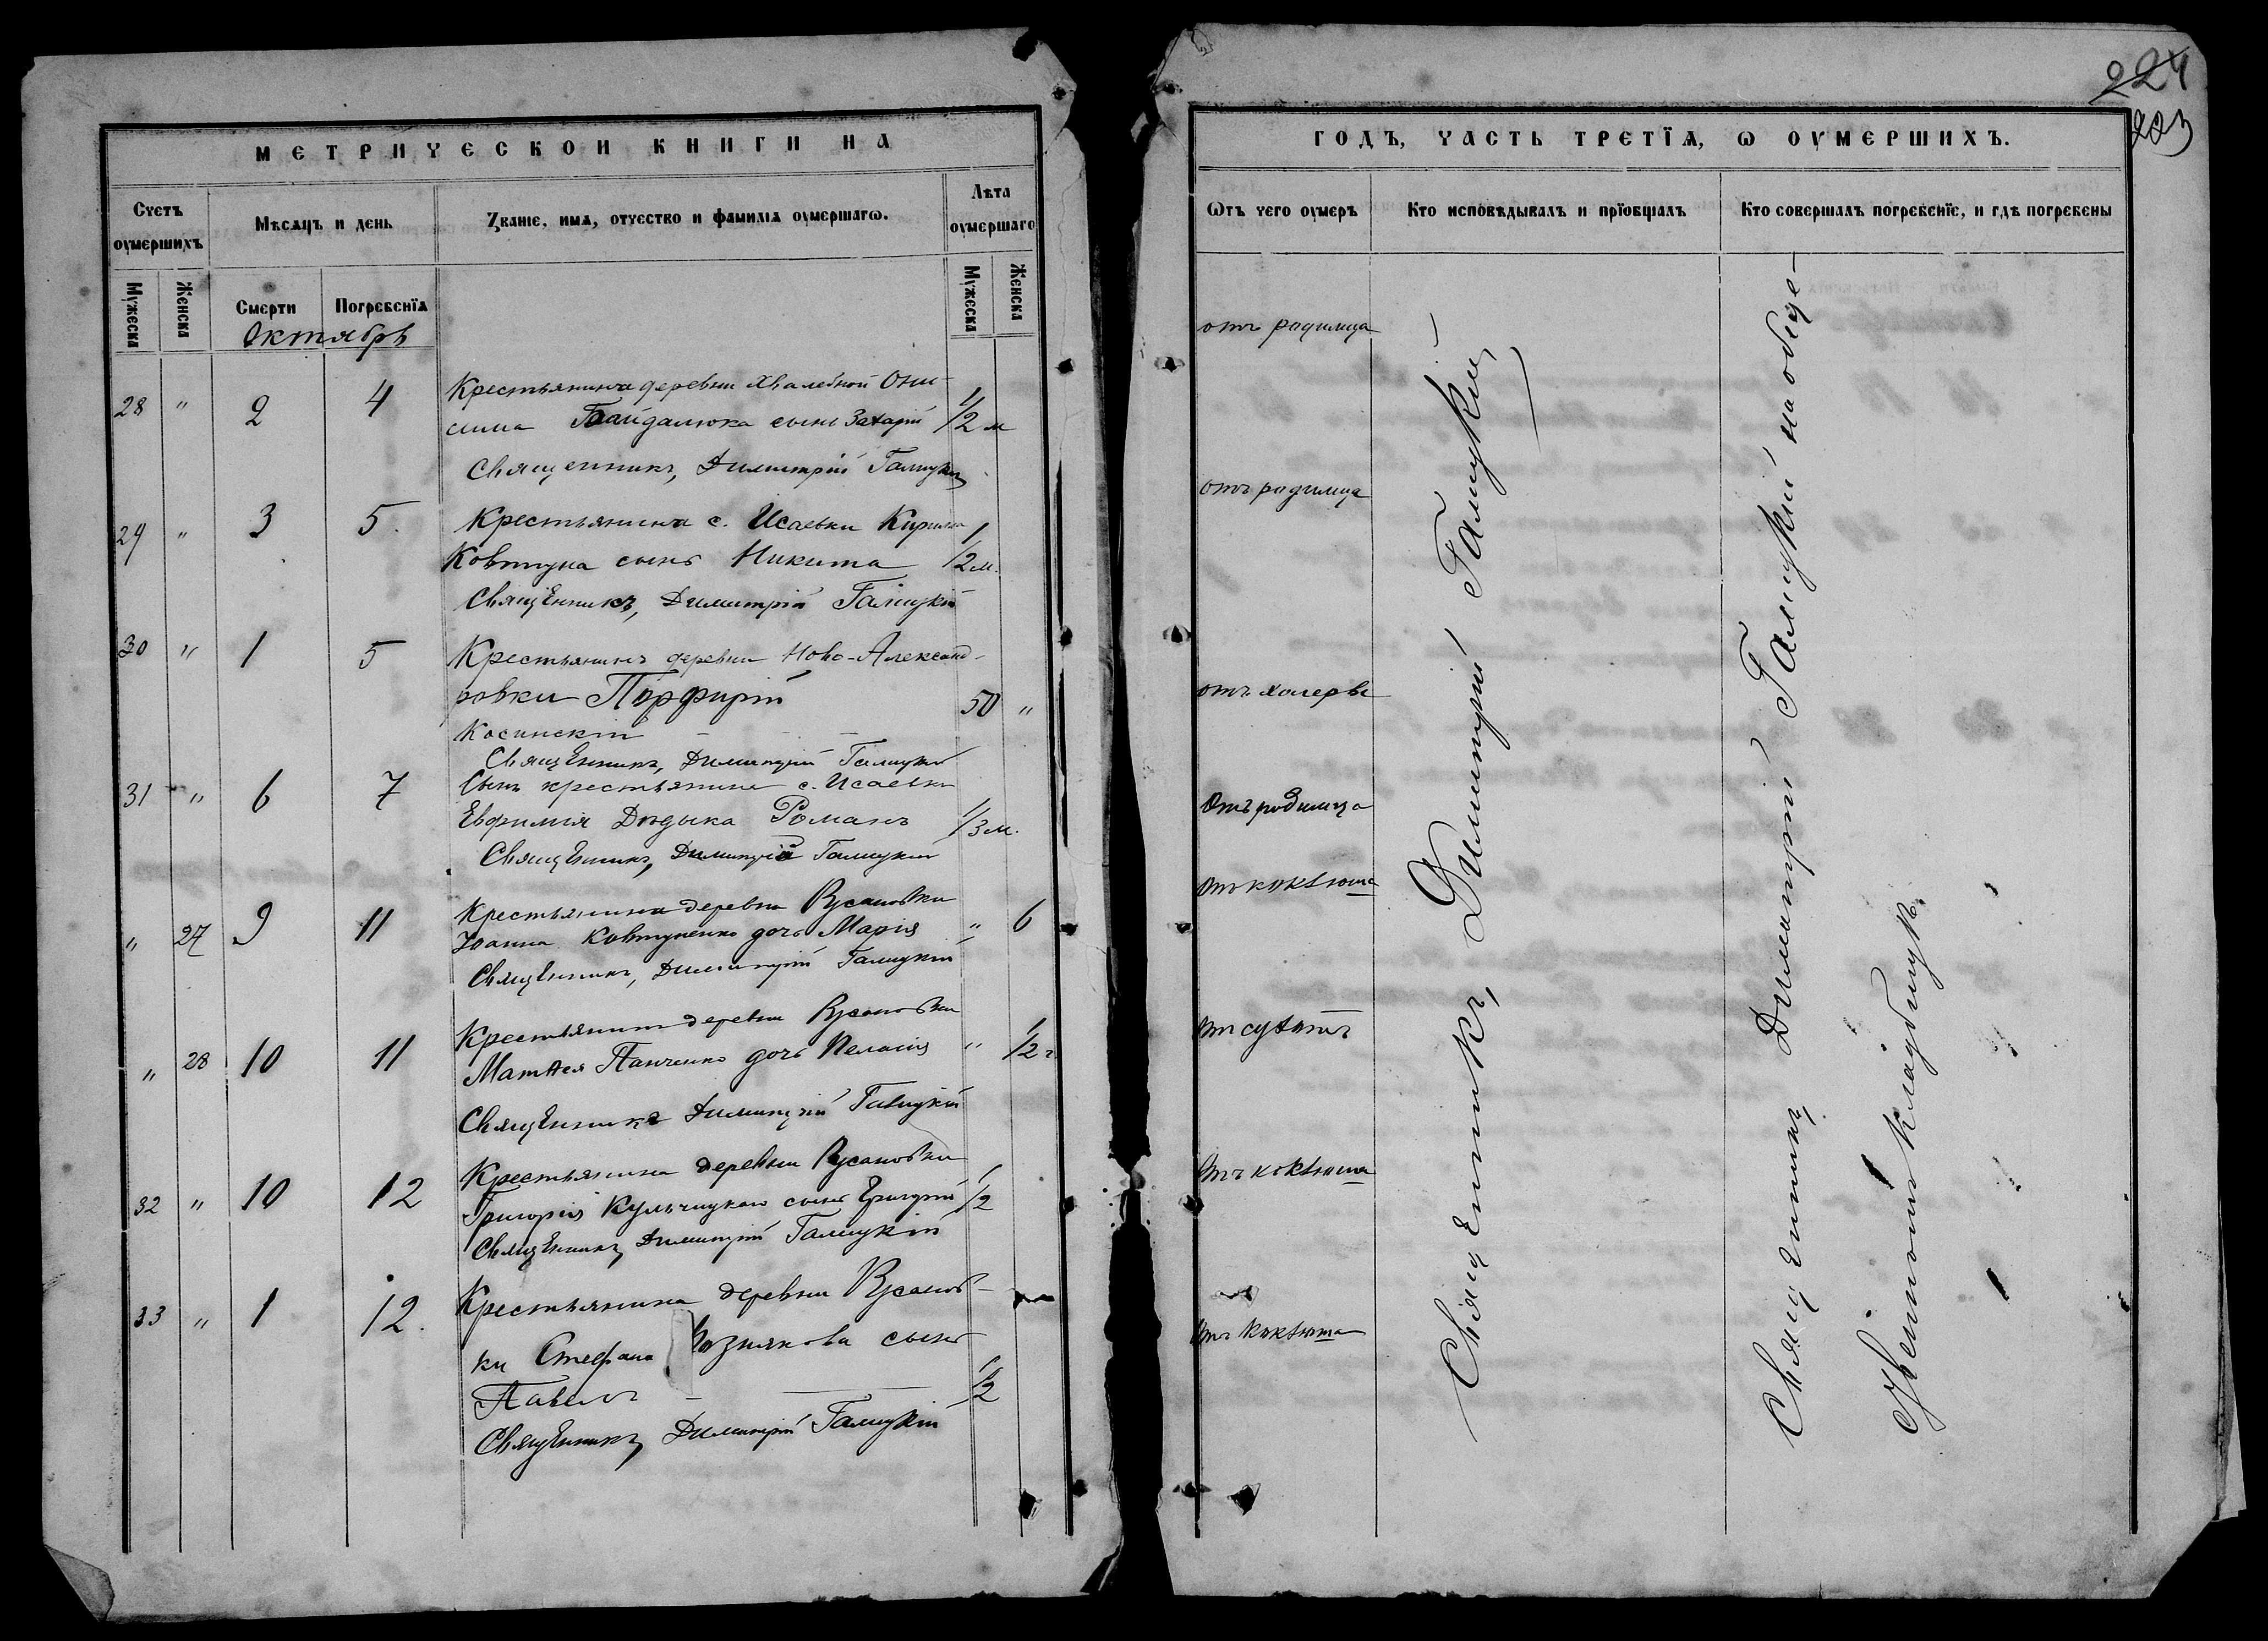 МЕТРИЧЕСКОИ КНИГИ НА
Счетъ оумершихъ
Мѣсяцъ и день
Званіе, имя, отчество и фамилія оумершагѡ.
Лѣта оумершаго
Мужеска
Женска
Смерти
Погребенїя
Мужеска
Женска
Октябрь
28 " 2 4 Крестьянина деревни Хвалебной Они-
сима Байдалюка сынъ Захарій 1/2 м
Священникъ, Димитрій Галицкій
29 " 3 5. Крестьянина с. Исаевки Кирилла
Ковтуна сынъ Никита 1/2 м.
Священникъ, Димитрій Галицкій
30 " 1 5 Крестьянинъ деревни Ново-Александ-
ровки Порфирій 50 "
Косинскій
Священникъ, Димитрій Галицкій
31 " 6 7 Сынъ крестьянина с. Исаевки
Евфимія Дѣдыка Романъ 1/3 м.
Священникъ, Димитрій Галицкій
" 27 9 11 Крестьянина деревни Русановки
Іоанна Ковтуненко дочь Марія " 6
Священникъ, Димитрій Галицкій
" 28 10 11 Крестьянина деревни Русановки
Матѳея Панченко дочь Пелагія " 1/2 г.
Священникъ Димитрій Галицкій
32 " 10 12 Крестьянина деревни Русановки
Григорія Кульчицкаго сынъ Григорій 1/2
Священникъ, Димитрій Галицкій
33 " 1 12. Крестьянина деревни Русанов-
ки Стефана Познякова сынъ
Павелъ 1/2
Священникъ, Димитрій Галицкій
224
223
ГОДЪ, ЧАСТЬ ТРЕТЇЯ, Ѡ ОУМЕРШИХЪ.
Ѿтъ чего оумеръ
Кто исповѣдывалъ и прїобщалъ
Кто совершалъ погребенїе, и гдѣ погребены
отъ родимца
отъ родимца
отъ холеры
Отъ родимца
Отъ коклюша
Отъ сухотъ
Отъ коклюша
Отъ коклюша
Священникъ, Димитрій Галицкій
Священникъ, Димитрій Галицкій на обще-
ственномъ кладбищѣ